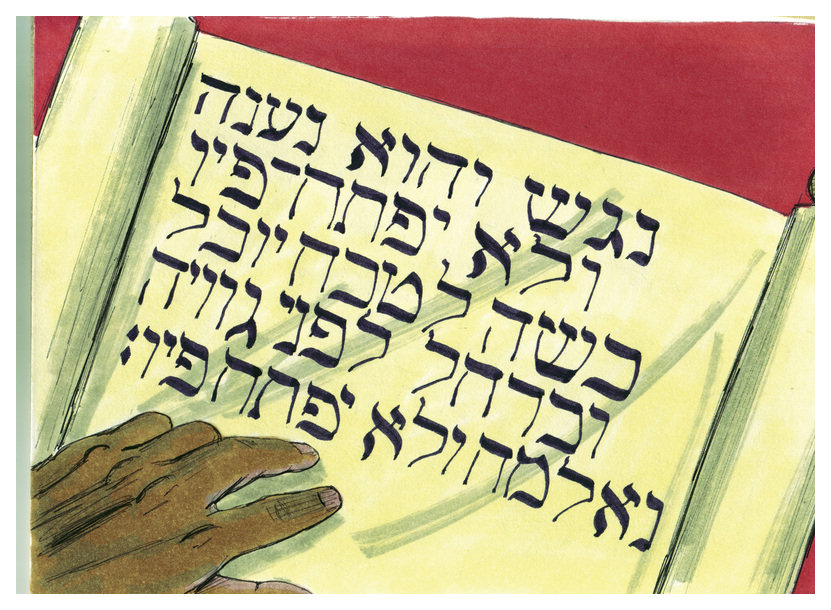 נגש והוא נענה
ולא יפתח־פיו
כשה לטבח יובל
וכרחל לפני גויה
נאלמה ולא יפתח פיו: